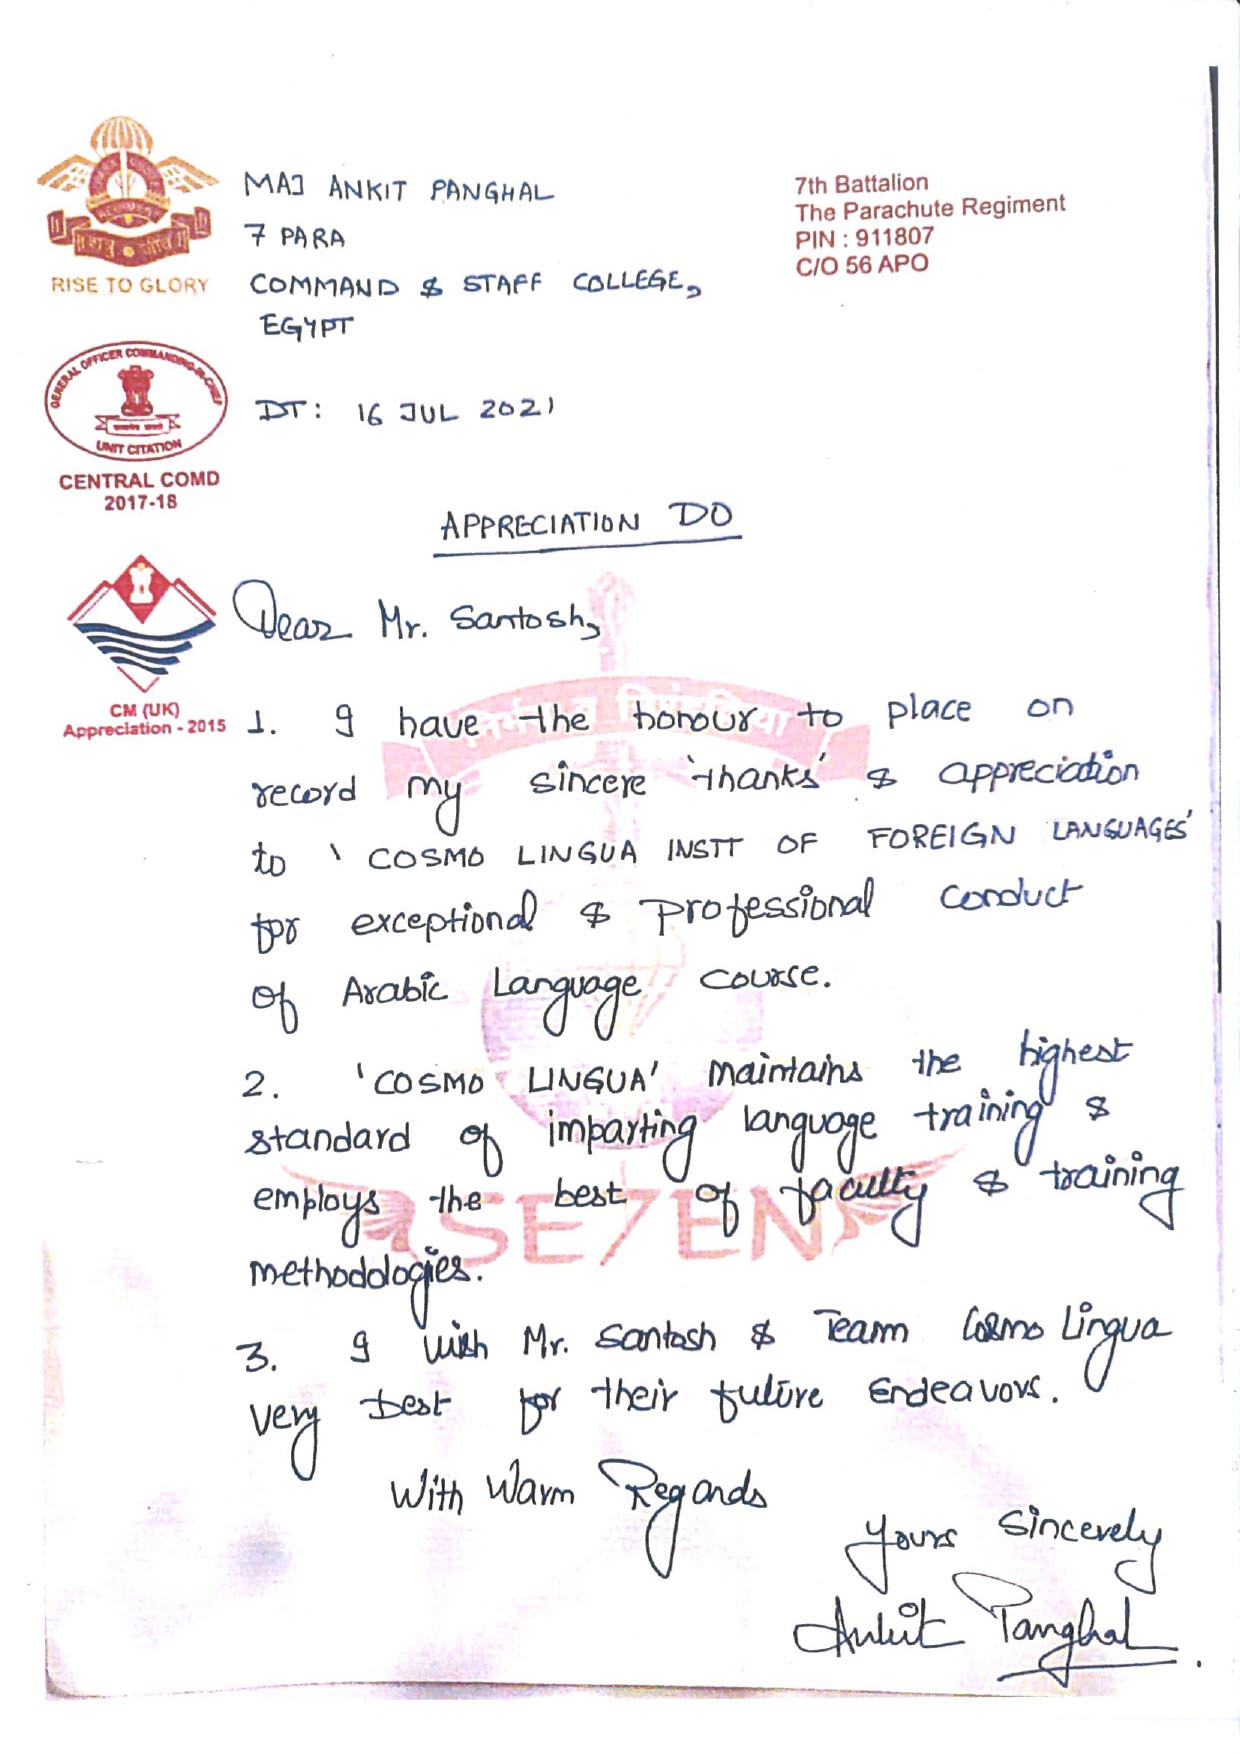 MAJ ANKIT PANGHAL
7 PARA
COMMAND & STAFF COLLEGE,
EGYPT
7th Battalion
The Parachute Regiment
PIN : 911807
C/O 56 APO
RISE TO GLORY
GENERAL OFFICER COMMANDING-IN-CHIEF
UNIT CITATION
CENTRAL COMD
2017-18
DT: 16 JUL 2021
APPRECIATION DO
CM (UK)
Appreciation - 2015
Dear Mr. Santosh,
1. I have the honour to place on
record my sincere 'thanks' & appreciation
to 'COSMO LINGUA INSTT OF FOREIGN LANGUAGES'
for exceptional & Professional conduct
of Arabic Language course.
2. 'COSMO LINGUA' maintains the highest
standard of imparting language training &
employs the best of faculty & training
methodologies.
SE7EN
3. I wish Mr. Santosh & Team Cosmo Lingua
very best for their future Endeavors.
With Warm Regards
Yours Sincerely
Ankit Panghal